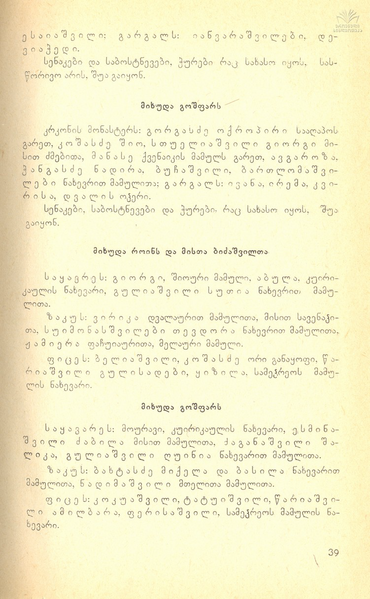 ესაიაშვილი; გარგალს: იანვარაშვილები, დე-
ვიაპედი.
სენაკები და საბოსტნევები, ჭურები რაც სახასო იყოს, სას-
წორივო არის, შუა გაიყონ.
მიხუდა გოშფარს
კრკონის მონასტერს: გორგასძე ოქროპირი სააღაპოს
გარეთ, კოშასძე შიო, სთუელიაშვილი გიორგი მი-
სით ძმებითა, მანასე ქვენაიკის მამულს გარეთ, ავგაროზა,
პანგასძე ნადირა, ბუჩაშვილი, ბართლომაშვი-
ლები ნახევრით მამულითა; გარგალს: ივანა, ირემა, კვი-
რისა, დვალის ოჯერი.
სენაკები, საბოსტნევები და ჭურები რაც სახასო იყოს, შუა
გაიყონ.
მიხუდა როინს და მისთა ბიძაშვილთა
საყავრეს: გიორგი, შიოური მამული, აბულა, კუირი-
კაულის ნახევარი, გულიაშვილი სუთია ნახევრით მამუ-
ლითა.
ზაკუს: ვირიკა დვალაურით მამულითა, მისით სავენაჴი-
თა, სუიმონასშვილები თევდორა ნახევრით მამულითა,
ჟამიერა ფაჩუიაურითა, მელაური მამული.
ფიცეს: ბელიაშვილი, კოშასძე ორი განაყოფი, წა-
რიაშვილი გულისადები, ყიზილა, სამეჭრეოს მამუ-
ლის ნახევარი.
მიხუდა გოშფარს
საყავარეს: მოურავი, კუირიკაულის ნახევარი, ესმინა-
შვილი ძაბილა მისით მამულითა, ძაგანაშვილი შა-
ლიკა, გულიაშვილი ღუინია ნახევარით მამულითა.
ზაკუს: ბახტასძე მიქელა და ბასილა ნახევარით
მამულითა, ნადიმაშვილი მთელითა მამულითა.
ფიცეს: კოკუაშვილი, ტატუიშვილი, წარიაშვი-
ლი ამილბარა, ფერისაშვილი, სამეჭრეოს მამულის ნა-
ხევარი.
39